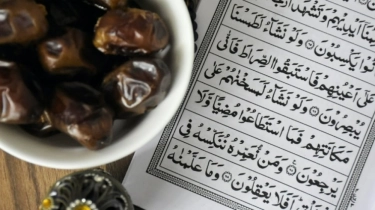 نَا أَيْدِيهِمْ وَتَشْهَدُ أَرْجُ
بِمَا كَانُوا يَكْسِبُونَ ۝ وَلَوْ نَشَاءُ لَطَمَسْنَا
عَلَىٰ أَعْيُنِهِمْ فَاسْتَبَقُوا الصِّرَاطَ فَأَنَّىٰ
يُبْصِرُونَ ۝ وَلَوْ نَشَاءُ لَمَسَخْنَاهُمْ عَلَىٰ
مَكَانَتِهِمْ فَمَا اسْتَطَاعُوا مُضِيًّا وَلَا
يَرْجِعُونَ ۝ وَمَنْ نُعَمِّرْهُ نُنَكِّسْهُ فِي
أَفَلَا يَعْقِلُونَ ۝ وَمَا عَلَّمْنَاهُ